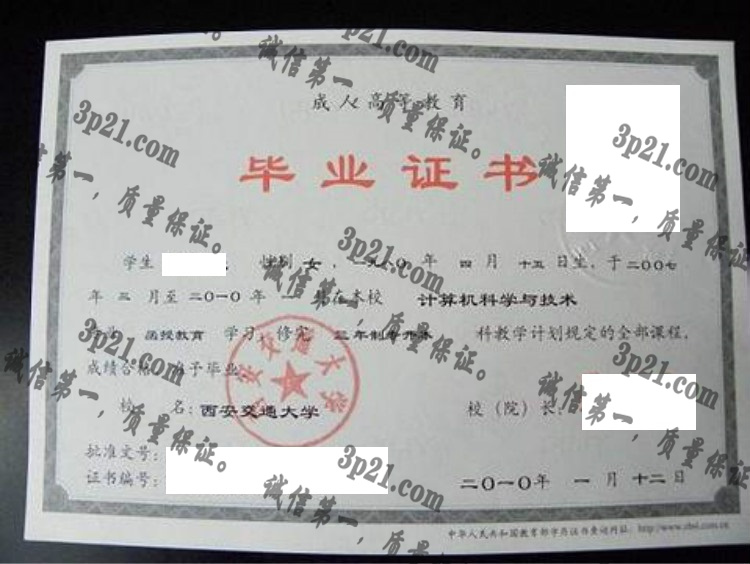 成人高等教育
毕业证书
学生 性别 女，一九八〇年 四 月 十五日生，于二〇〇七
年 三 月至 二〇一〇 年 一 月在本校 计算机科学与技术
专业 函授教育 学习，修完 三年制专升本 科教学计划规定的全部课程，
成绩合格，准予毕业。
校 名：西安交通大学 校（院）长：
批准文号：
证书编号： 二〇一〇年 一 月 十二 日
中华人民共和国教育部学历证书查询网址：http://www.chsi.com.cn
西安交通大学
3p21.com
诚信第一，质量保证。
3p21.com
诚信第一，质量保证。
3p21.com
诚信第一，质量保证。
3p21.com
诚信第一，质量保证。
3p21.com
诚信第一，质量保证。
诚信第一，质量保证。
诚信第一，质量保证。